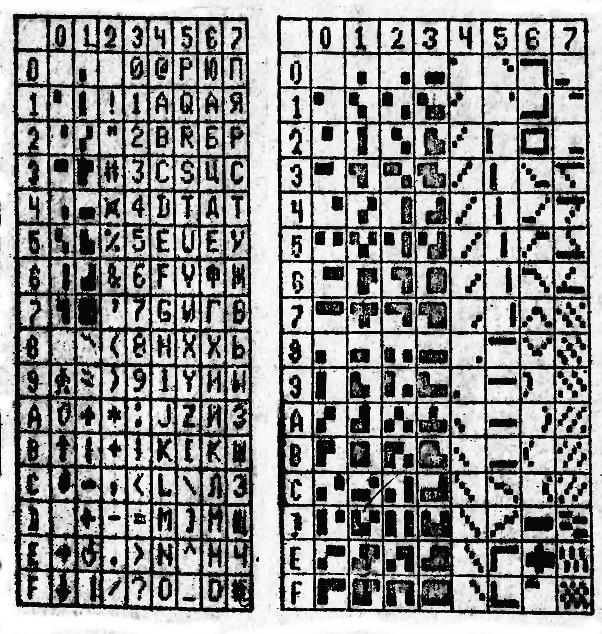 0 1 2 3 4 5 6 7
0 0 @ P Ю П
1 ! 1 A Q А Я
2 " 2 B R Б Р
3 # 3 C S Ц С
4 ¤ 4 D T Д Т
5 % 5 E U Е У
6 & 6 F V Ф Ж
7 ' 7 G W Г В
8 ( 8 H X Х Ь
9 ) 9 I Y И Ы
A * : J Z Й З
B + ; K [ К Ш
C , < L \ Л Э
D - = M ] М Щ
E . > N ^ Н Ч
F / ? O _ О
0 1 2 3 4 5 6 7
0
1
2
3
4
5
6
7
8
9
A
B
C
D
E
F